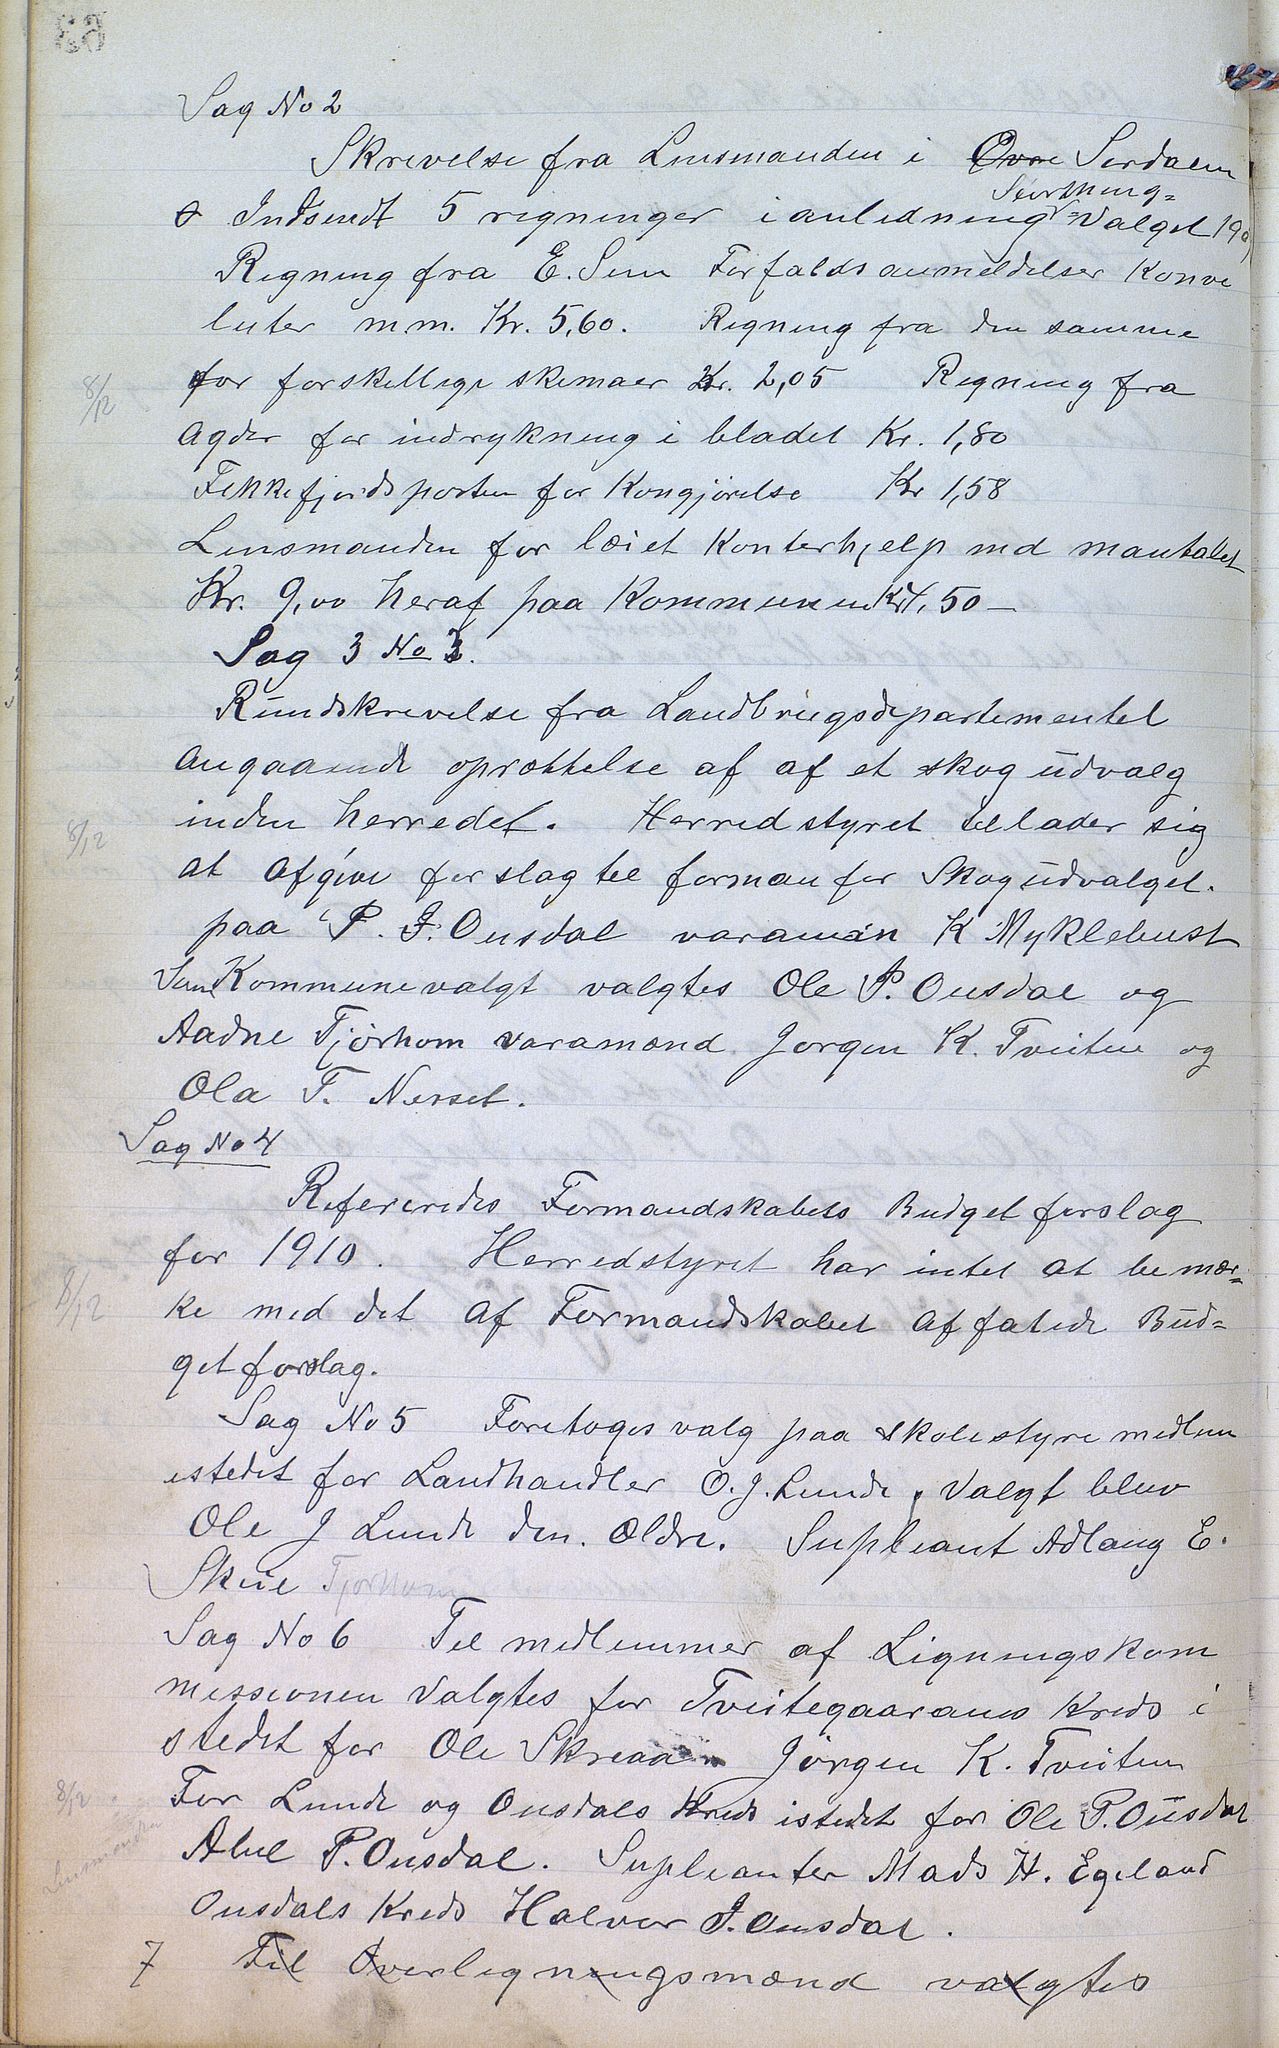 Sag No 2
Skrivelse fra Lensmanden i Øvre Serdalen
Storthing=
& Indsendt 5 regninger i anledning Valget 190
Regning fra E. Sem Forfaldsanmeldelser Konvo
luter m.m. Kr. 5,60. Regning fra den samme
for forskellige skemaer Kr. 2,05 Regning fra
8/12
Agder for indrykning i bladet Kr. 1,80
Flekkefjordsposten for Kongjørelse Kr 1,58
Lensmanden for leiet Konterhjelp med mantalet
Kr. 9,00 heraf paa Kommunen Kr 4,50 —
Sag 3 No 3.
Rundskrivelse fra Landbrugsdepartementet
angaaende oprættelse af af et skogudvalg
inden herredet. Herredstyret tillader sig
8/12
at afgive forslag til forman for Skogudvalget.
paa P. J. Ousdal varaman K Myklebust
Som Kommunevalgt valgtes Ole P. Ousdal og
Aadne Tjørhom varamænd Jørgen K. Tveiten og
Ola T. Nesset.
Sag No 4
Refereredes Formandskabets Budgetforslag
for 1910. Herredstyret har intet at bemær-
8/12
ke med det af Formandskabet affatede Bud=
getforslag.
Sag No 5 Foretoges valg paa skolestyremedlem
istedet for Landhandler O. J. Lunde, Valgt blev
Ole J Lunde den. Ældre. Supleant Adlaug E.
Skeie Tjorhom
Sag No 6 Til medlemmer af Ligningskom
missionen Valgtes for Tveitegaaranes Kreds i
stedet for Ole Skreaa Jørgen K. Tveiten
8/12
For Lunde og Ousdals Kreds istedet for Ole P. Ousdal
Lensmanden
Abel P. Ousdal. Supleanter Mads H. Egeland
Ousdals Kreds Halvor J. Ousdal.
7 Til Overligningsmænd valgtes